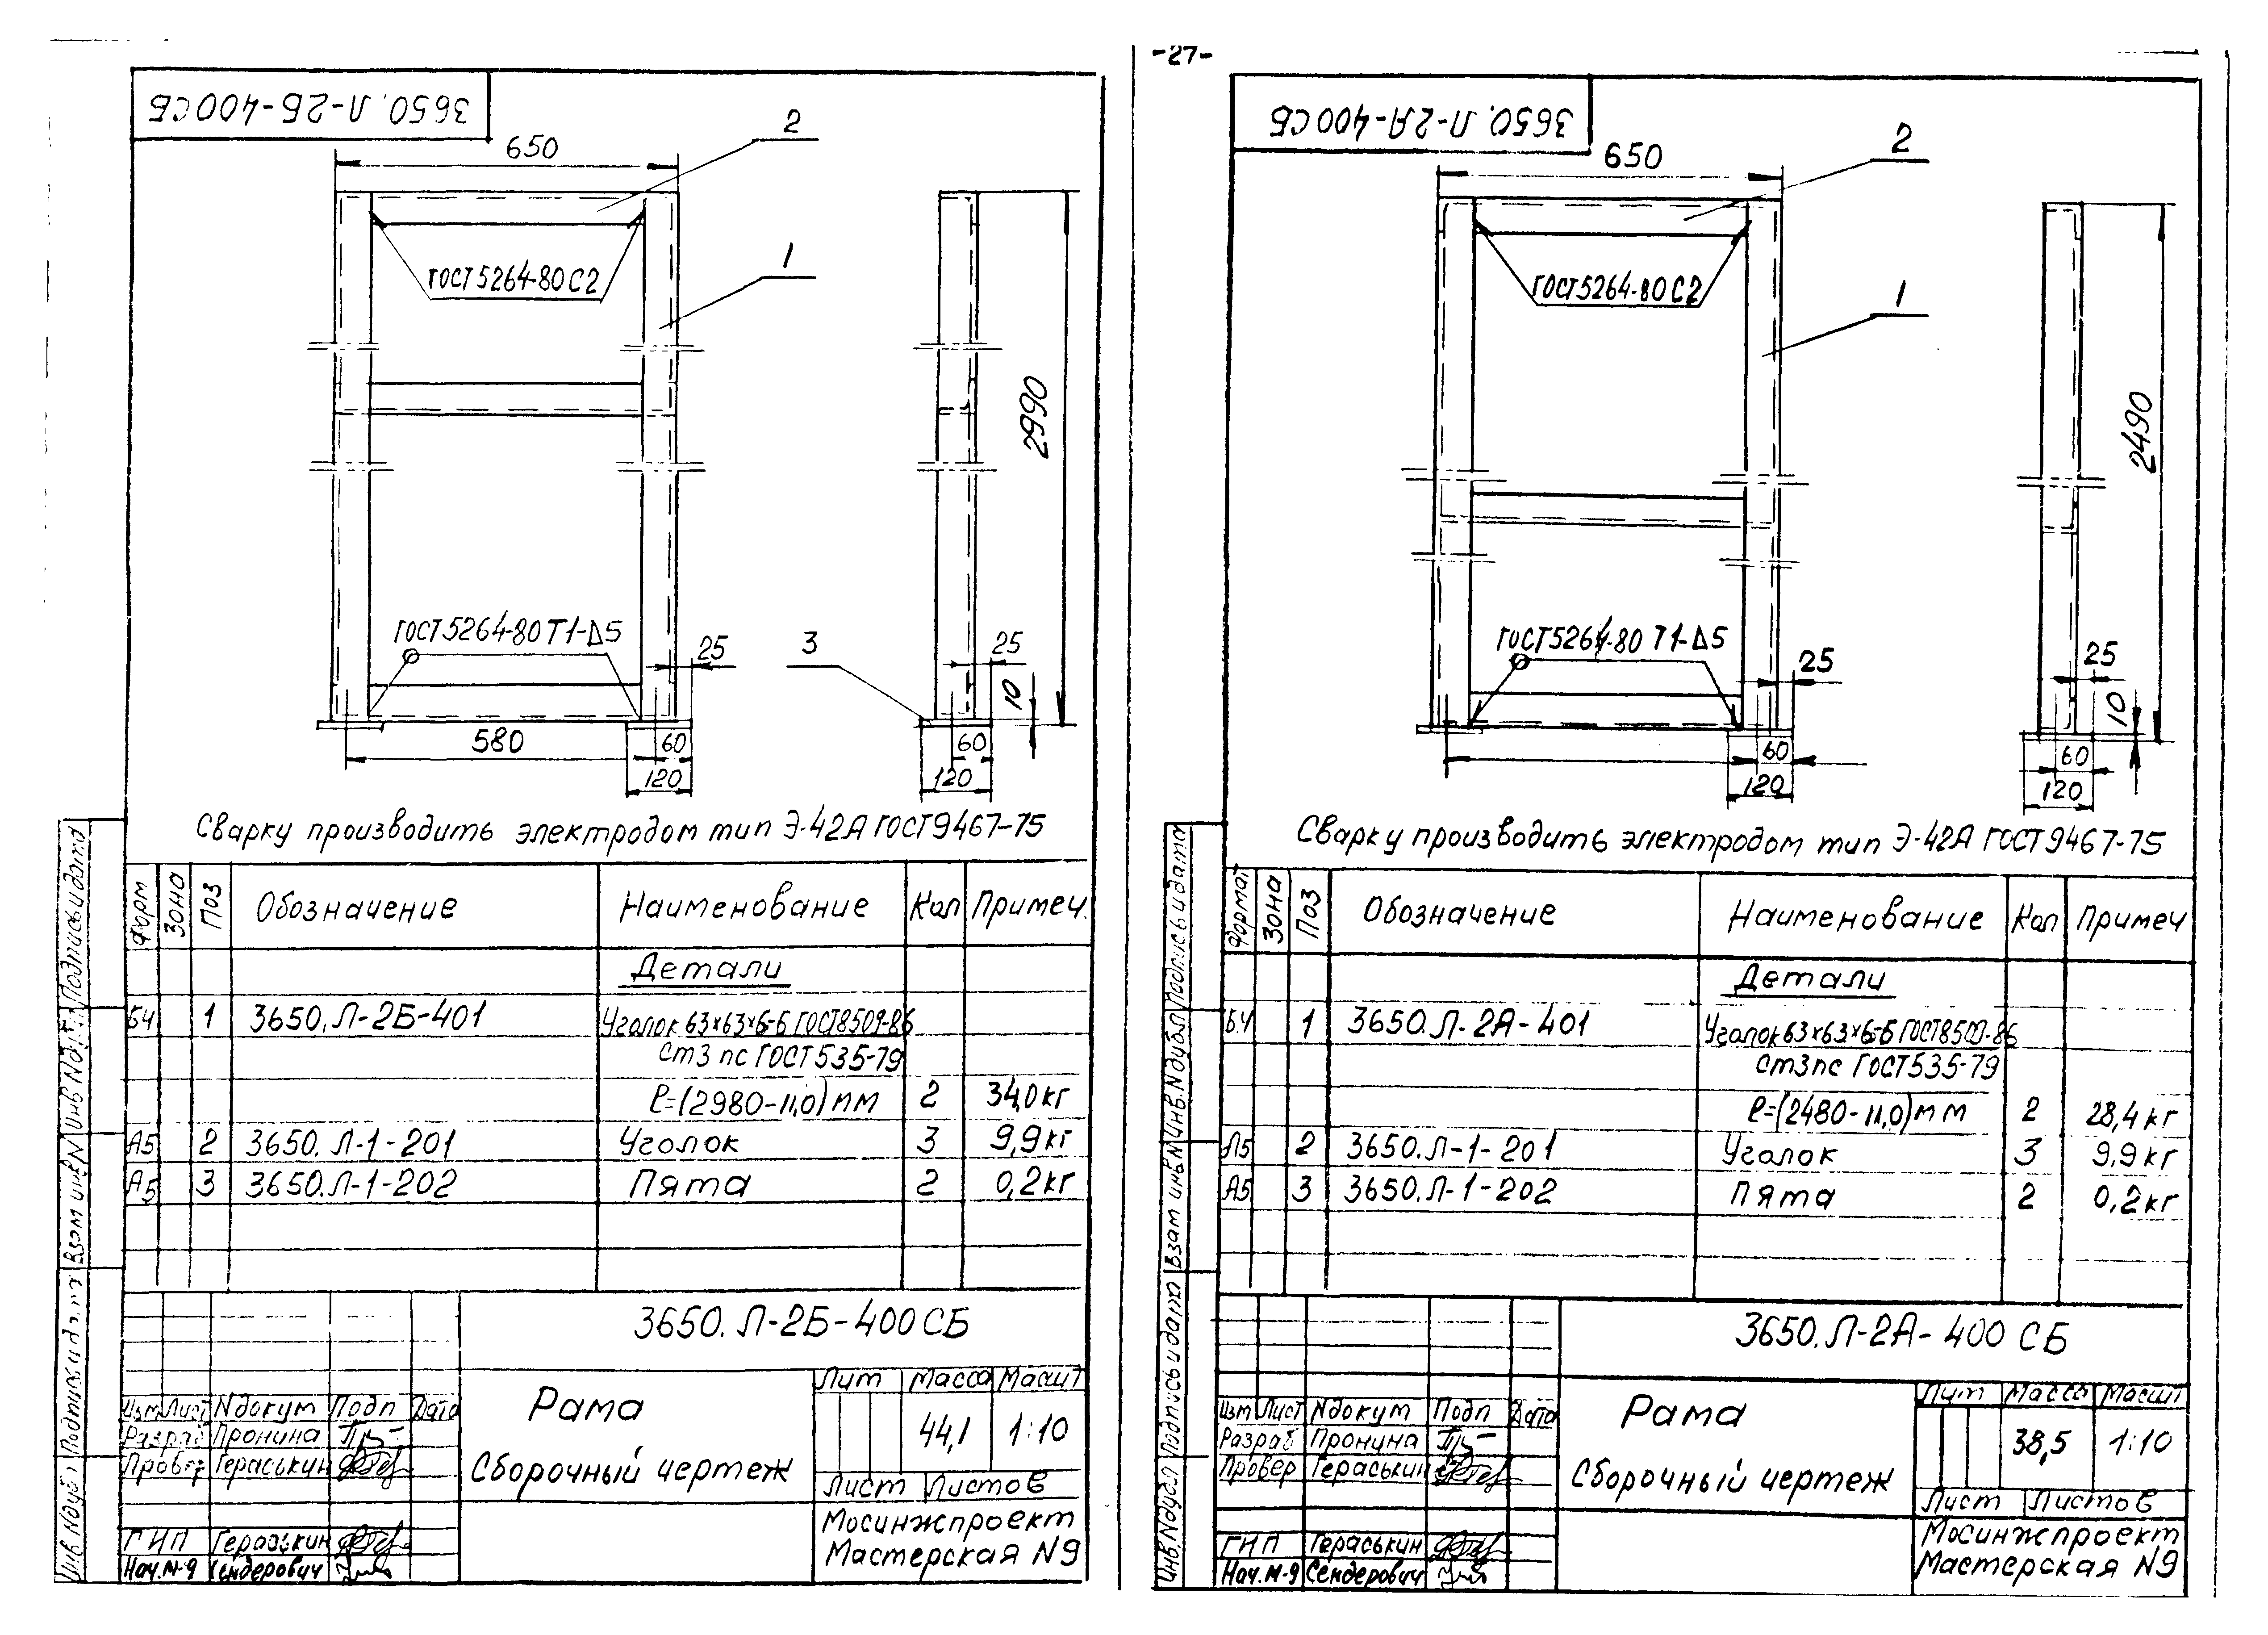 -27-
3650. Л-2Б-400СБ
650
2
ГОСТ5264-80 С2
1
2990
ГОСТ5264-80 Т1-Δ5
25
3
25
10
580
60
120
60
120
Сварку производить электродом тип Э-42А ГОСТ9467-75
Форм Зона Поз Обозначение Наименование Кол Примеч.
Детали
БЧ 1 3650. Л-2Б-401 Уголок 63×63×6-Б ГОСТ8509-86
Ст3 пс ГОСТ535-79
ℓ=(2980-11,0)мм 2 34,0кг
А5 2 3650. Л-1-201 Уголок 3 9,9кг
А5 3 3650. Л-1-202 Пята 2 0,2кг
3650. Л-2Б-400СБ
Рама
Сборочный чертеж
Лит Масса Масшт
44,1 1:10
Лист Листов
Мосинжпроект
Мастерская N9
Изм Лист Nдокум Подп Дата
Разраб Пронина
Провер Гераськин
ГИП Гераськин
Нач.М-9 Сендерович
Инв. Nдубл Подпись и дата Взам инв N Инв Nдубл Подпись и дата
3650. Л-2А-400СБ
650
2
ГОСТ5264-80 С2
1
2490
ГОСТ5264-80 Т1-Δ5
25
25
10
60
120
60
120
Сварку производить электродом тип Э-42А ГОСТ9467-75
Формат Зона Поз Обозначение Наименование Кол Примеч
Детали
БЧ 1 3650. Л-2А-401 Уголок 63×63×6-Б ГОСТ8509-86
Ст3пс ГОСТ535-79
ℓ=(2480-11,0)мм 2 28,4кг
А5 2 3650. Л-1-201 Уголок 3 9,9кг
А5 3 3650. Л-1-202 Пята 2 0,2кг
3650. Л-2А-400 СБ
Рама
Сборочный чертеж
Лит Масса Масшт
38,5 1:10
Лист Листов
Мосинжпроект
Мастерская N9
Изм Лист Nдокум Подп Дата
Разраб Пронина
Провер Гераськин
ГИП Гераськин
Нач.М-9 Сендерович
Инв. Nдубл Подпись и дата Взам инв N Инв. Nдубл Подпись и дата